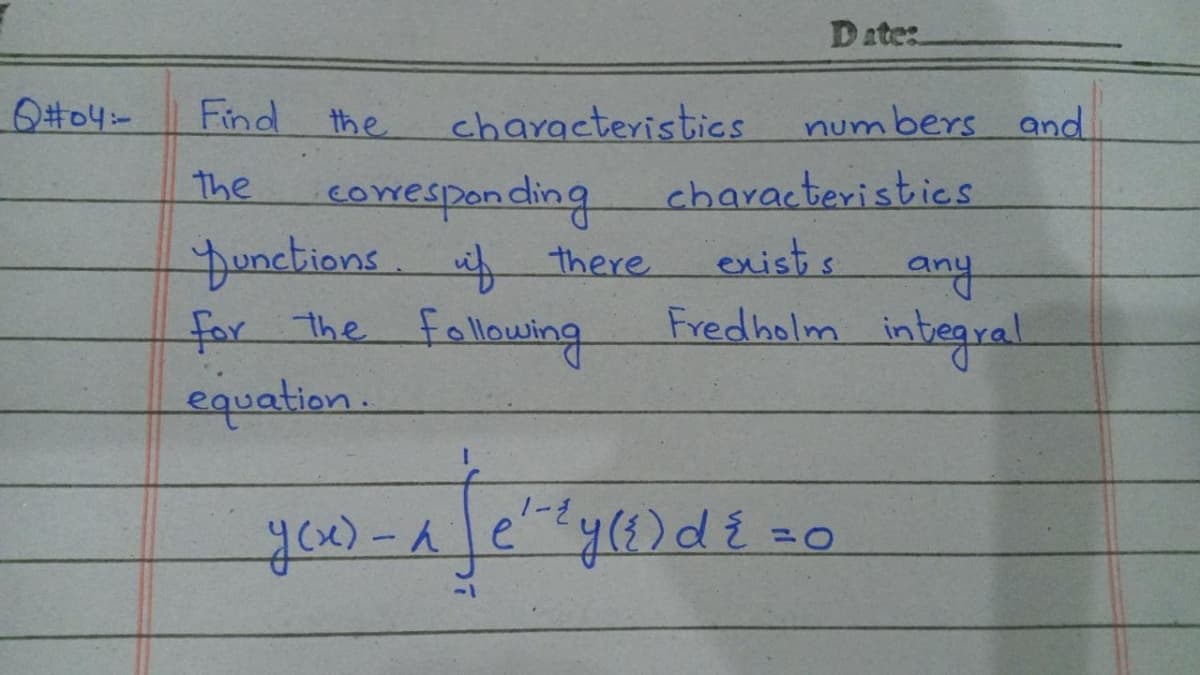 Date:
Q#04:- Find the characteristics numbers and
the corresponding characteristics
functions. if there exists any
for the following Fredholm integral
equation.
y(x) - λ ∫₋₁¹ e^(1-ξ) y(ξ) dξ = 0